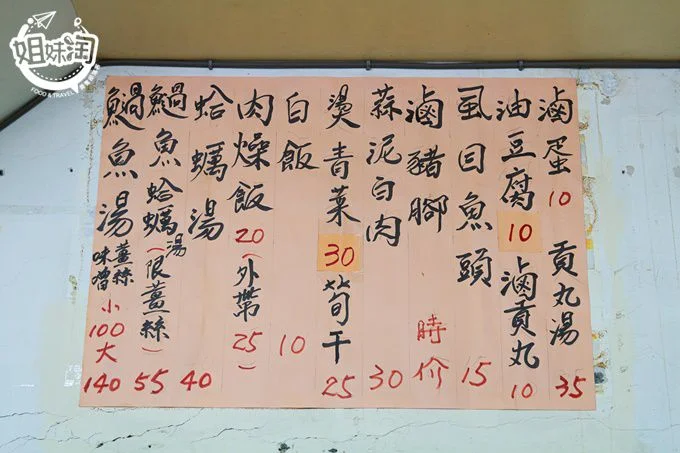 姐妹淘
FOOD & TRAVEL
滷蛋 10 貢丸湯 35
油豆腐 10 滷貢丸 10
虱目魚頭 15
滷豬腳 時价
蒜泥白肉 30
燙青菜 30 筍干 25
白飯 10
肉燥飯 20(外帶25)
蛤蠣湯 40
鍋魚蛤蠣湯(限薑絲) 55
鍋魚湯 薑絲 味噌 小100 大140